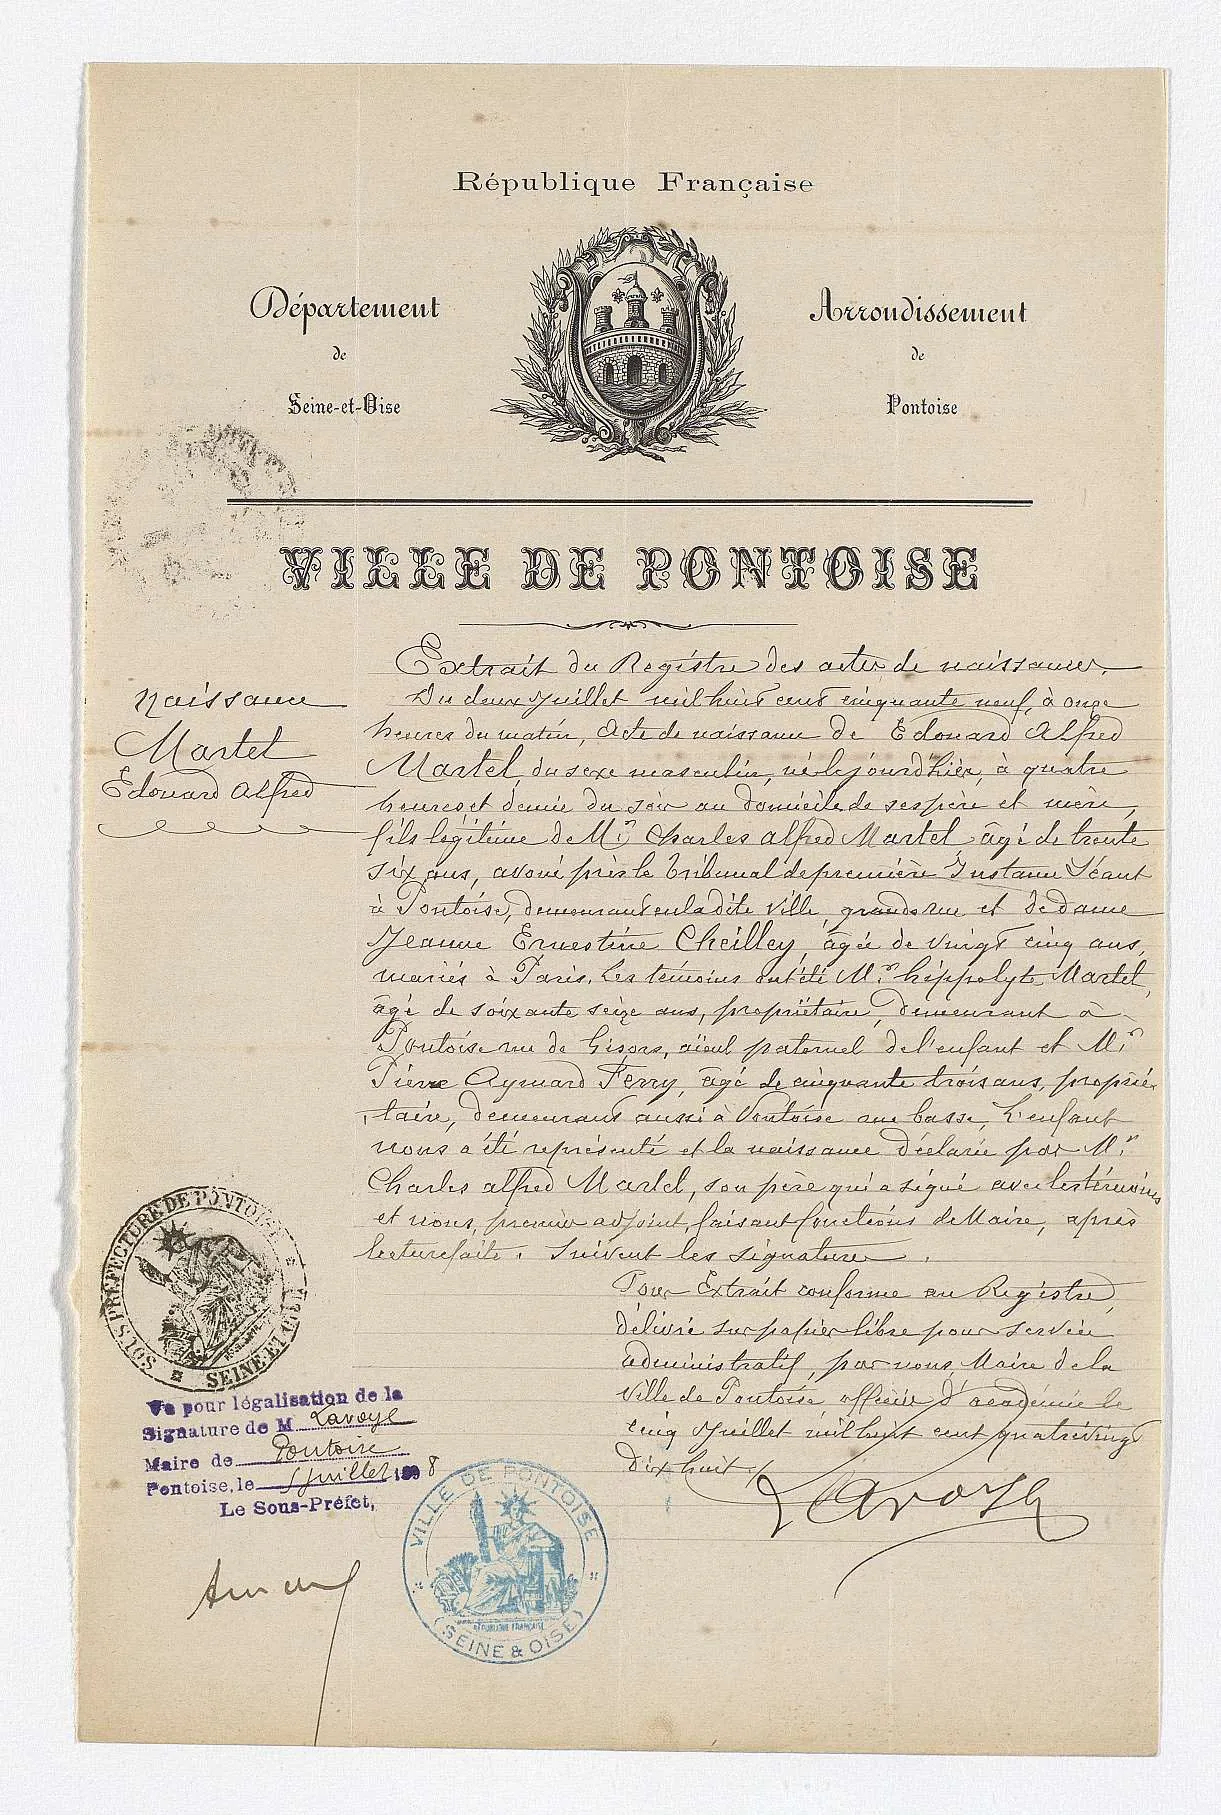 République Française
Département
de
Seine-et-Oise
Arrondissement
de
Pontoise
VILLE DE PONTOISE
Naissance
Martel
Edouard Alfred
Extrait du Registre des actes de naissances.
Du deux Juillet mil huit cent cinquante neuf, à onze
heures du matin, Acte de naissance de Edouard Alfred
Martel, du sexe masculin, né le jour d'hier, à quatre
heures et demie du soir au domicile de ses père et mère,
fils légitime de Mr. Charles Alfred Martel, âgé de trente
six ans, avoué près le Tribunal de première Instance Séant
à Pontoise, demeurant en la dite ville, grande rue et de dame
Jeanne Ernestine Cheilley, âgée de vingt cinq ans,
mariés à Paris. Les témoins ont été Mr. hippolyte Martel,
âgé de soixante seize ans, propriétaire, demeurant à
Pontoise rue de Gisors, aïeul paternel de l'enfant et Mr.
Pierre Aymard Ferry, âgé de cinquante trois ans, proprié-
taire, demeurant aussi à Pontoise rue basse, L'enfant
nous a été représenté et la naissance déclarée par Mr.
Charles alfred Martel, son père qui a signé avec les témoins
et nous, premier adjoint, faisant fonctions de Maire, après
lecture faite. Suivent les signatures.
Pour Extrait conforme au Registre,
délivré sur papier libre pour service
administratif, par nous, Maire de la
Ville de Pontoise officier d'académie le
cinq Juillet mil huit cent quatre vingt
dix huit.
Lavoye
SOUS-PRÉFECTURE DE PONTOISE
SEINE-ET-OISE
Vu pour légalisation de la
Signature de M Lavoye
Maire de Pontoise
Pontoise, le 5 juillet 1898
Le Sous-Préfet,
VILLE DE PONTOISE
RÉPUBLIQUE FRANÇAISE
(SEINE & OISE)